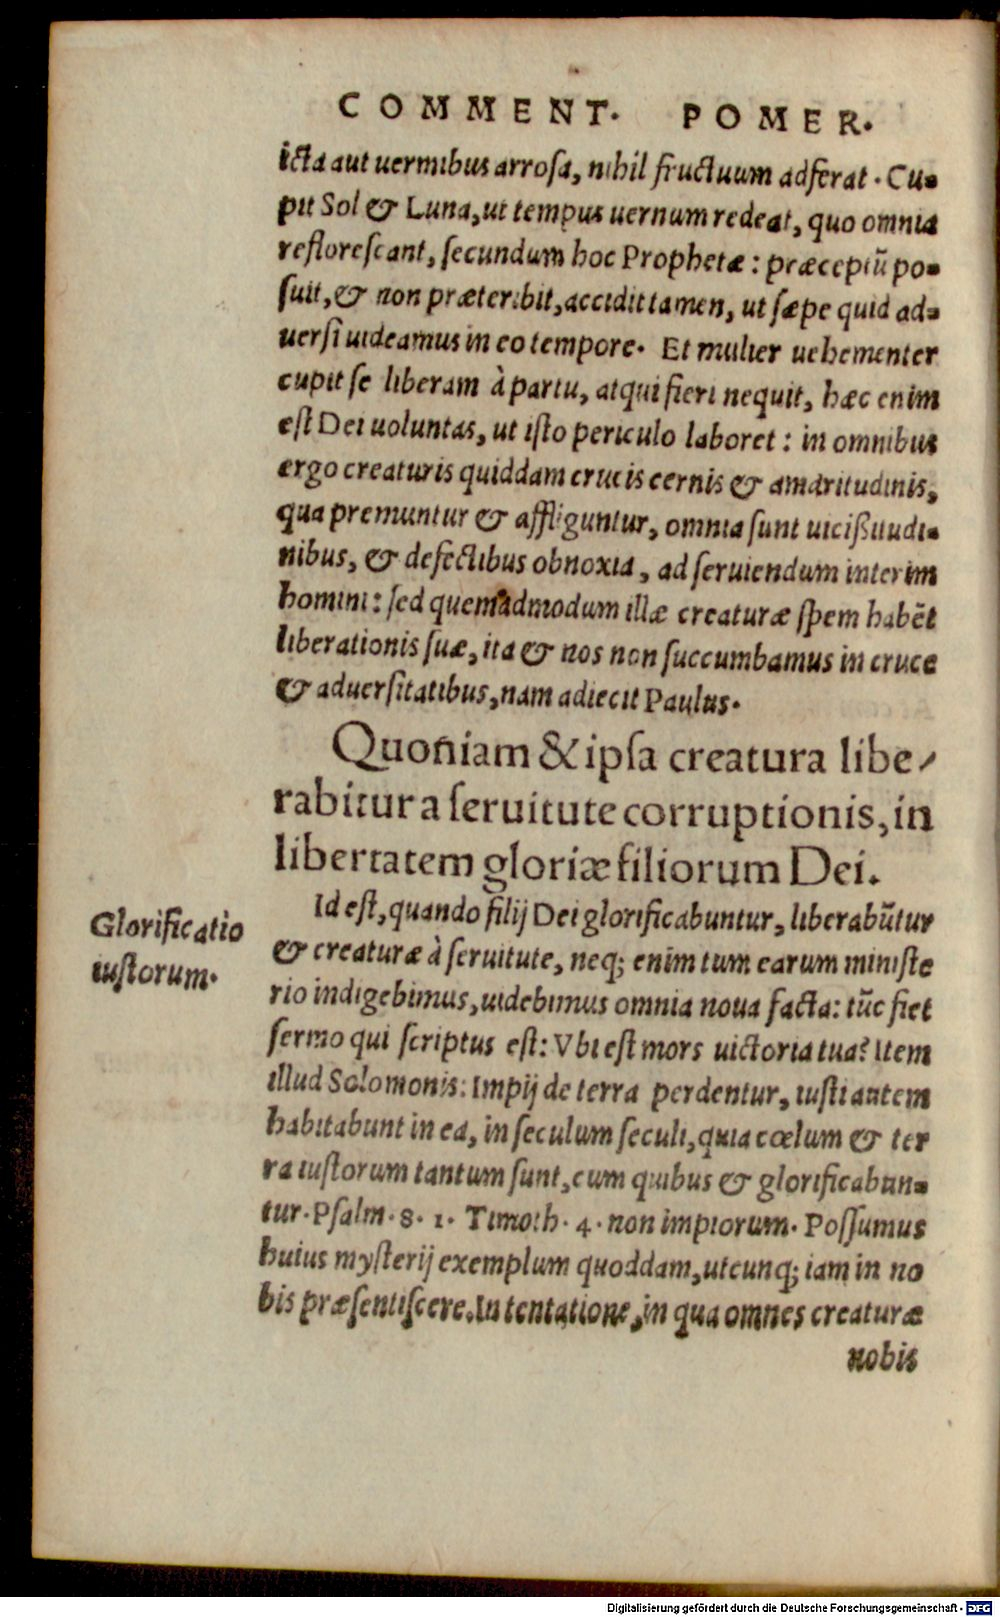 COMMENT. POMER.
icta aut uermibus arrosa, nihil fructuum adferat. Cu-
pit Sol & Luna, ut tempus uernum redeat, quo omnia
reflorescant, secundum hoc Prophetæ: præceptū po-
suit, & non præteribit, accidit tamen, ut sæpe quid ad-
uersi uideamus in eo tempore. Et mulier uehementer
cupit se liberam à partu, atqui fieri nequit, hæc enim
est Dei uoluntas, ut isto periculo laboret: in omnibus
ergo creaturis quiddam crucis cernis & amaritudinis,
qua premuntur & affliguntur, omnia sunt uicißitudi-
nibus, & defectibus obnoxia, ad seruiendum interim
homini: sed quemadmodum illæ creaturæ spem habēt
liberationis suæ, ita & nos non succumbamus in cruce
& aduersitatibus, nam adiecit Paulus.
Quoniam & ipsa creatura libe-
rabitur a seruitute corruptionis, in
libertatem gloriæ filiorum Dei.
Glorificatio
iustorum.
Id est, quando filij Dei glorificabuntur, liberabūtur
& creaturæ à seruitute, neq; enim tum earum ministe
rio indigebimus, uidebimus omnia noua facta: tūc fiet
sermo qui scriptus est: Vbi est mors uictoria tua? Item
illud Solomonis: Impij de terra perdentur, iusti autem
habitabunt in ea, in seculum seculi, quia cœlum & ter
ra iustorum tantum sunt, cum quibus & glorificabun-
tur. Psalm. 8. 1. Timoth. 4. non impiorum. Possumus
huius mysterij exemplum quoddam, utcunq; iam in no
bis præsentiscere. In tentatione, in qua omnes creaturæ
nobis
Digitalisierung gefördert durch die Deutsche Forschungsgemeinschaft - DFG